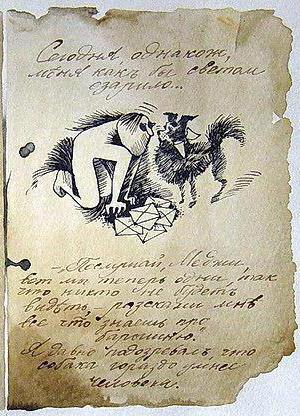 Сегодня, однакож,
меня какъ бы светом
озарило...
— Послушай, Меджи,
вот мы теперь одни, так
что никто не будетъ
видѣть, разскажи мнѣ
все что знаешь про
барышню.
Я давно подозревалъ, что
собака гораздо умнее
человека.